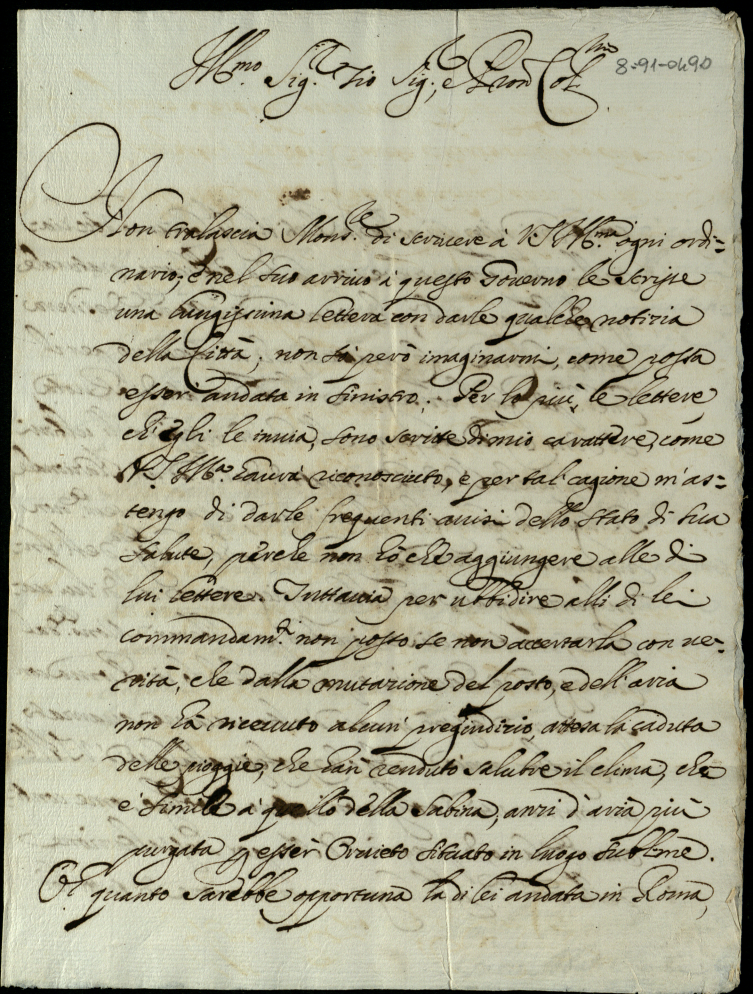 Ill.mo Sig.r Zio Sig.r, e Pron Col.mo
8-91-0490
Non tralascia Mons.re di scrivere à V.S.Ill.ma ogni ordi=
nario, e nel suo arrivo à questo Governo le scrisse
una lunghissima lettera con darle qualche notizia
della Città; non sò però imaginarmi, come possa
esser' andata in sinistro. Per lo più, le lettere
ch'egli le invia, sono scritte di mio carattere, come
V.S.Ill.ma havrà riconosciuto, e per tal cagione m'as=
tengo di darle frequenti avvisi dello stato di sua
salute, perche non hò che aggiungere alle di
lui lettere. Tuttavia per ubbidire alli di lei
commandam.ti non posso se non accertarla con ve=
rità, che dalla mutazione del posto, e dell'aria
non hà ricevuto alcun pregiudizio, attesa la caduta
delle pioggie, che han renduto salubre il clima, che
è simile à quello della Sabina, anzi d'aria più
purgata p esser Orvieto situato in luogo sublime.
Oh quanto sarebbe opportuna la di lei andata in Roma,